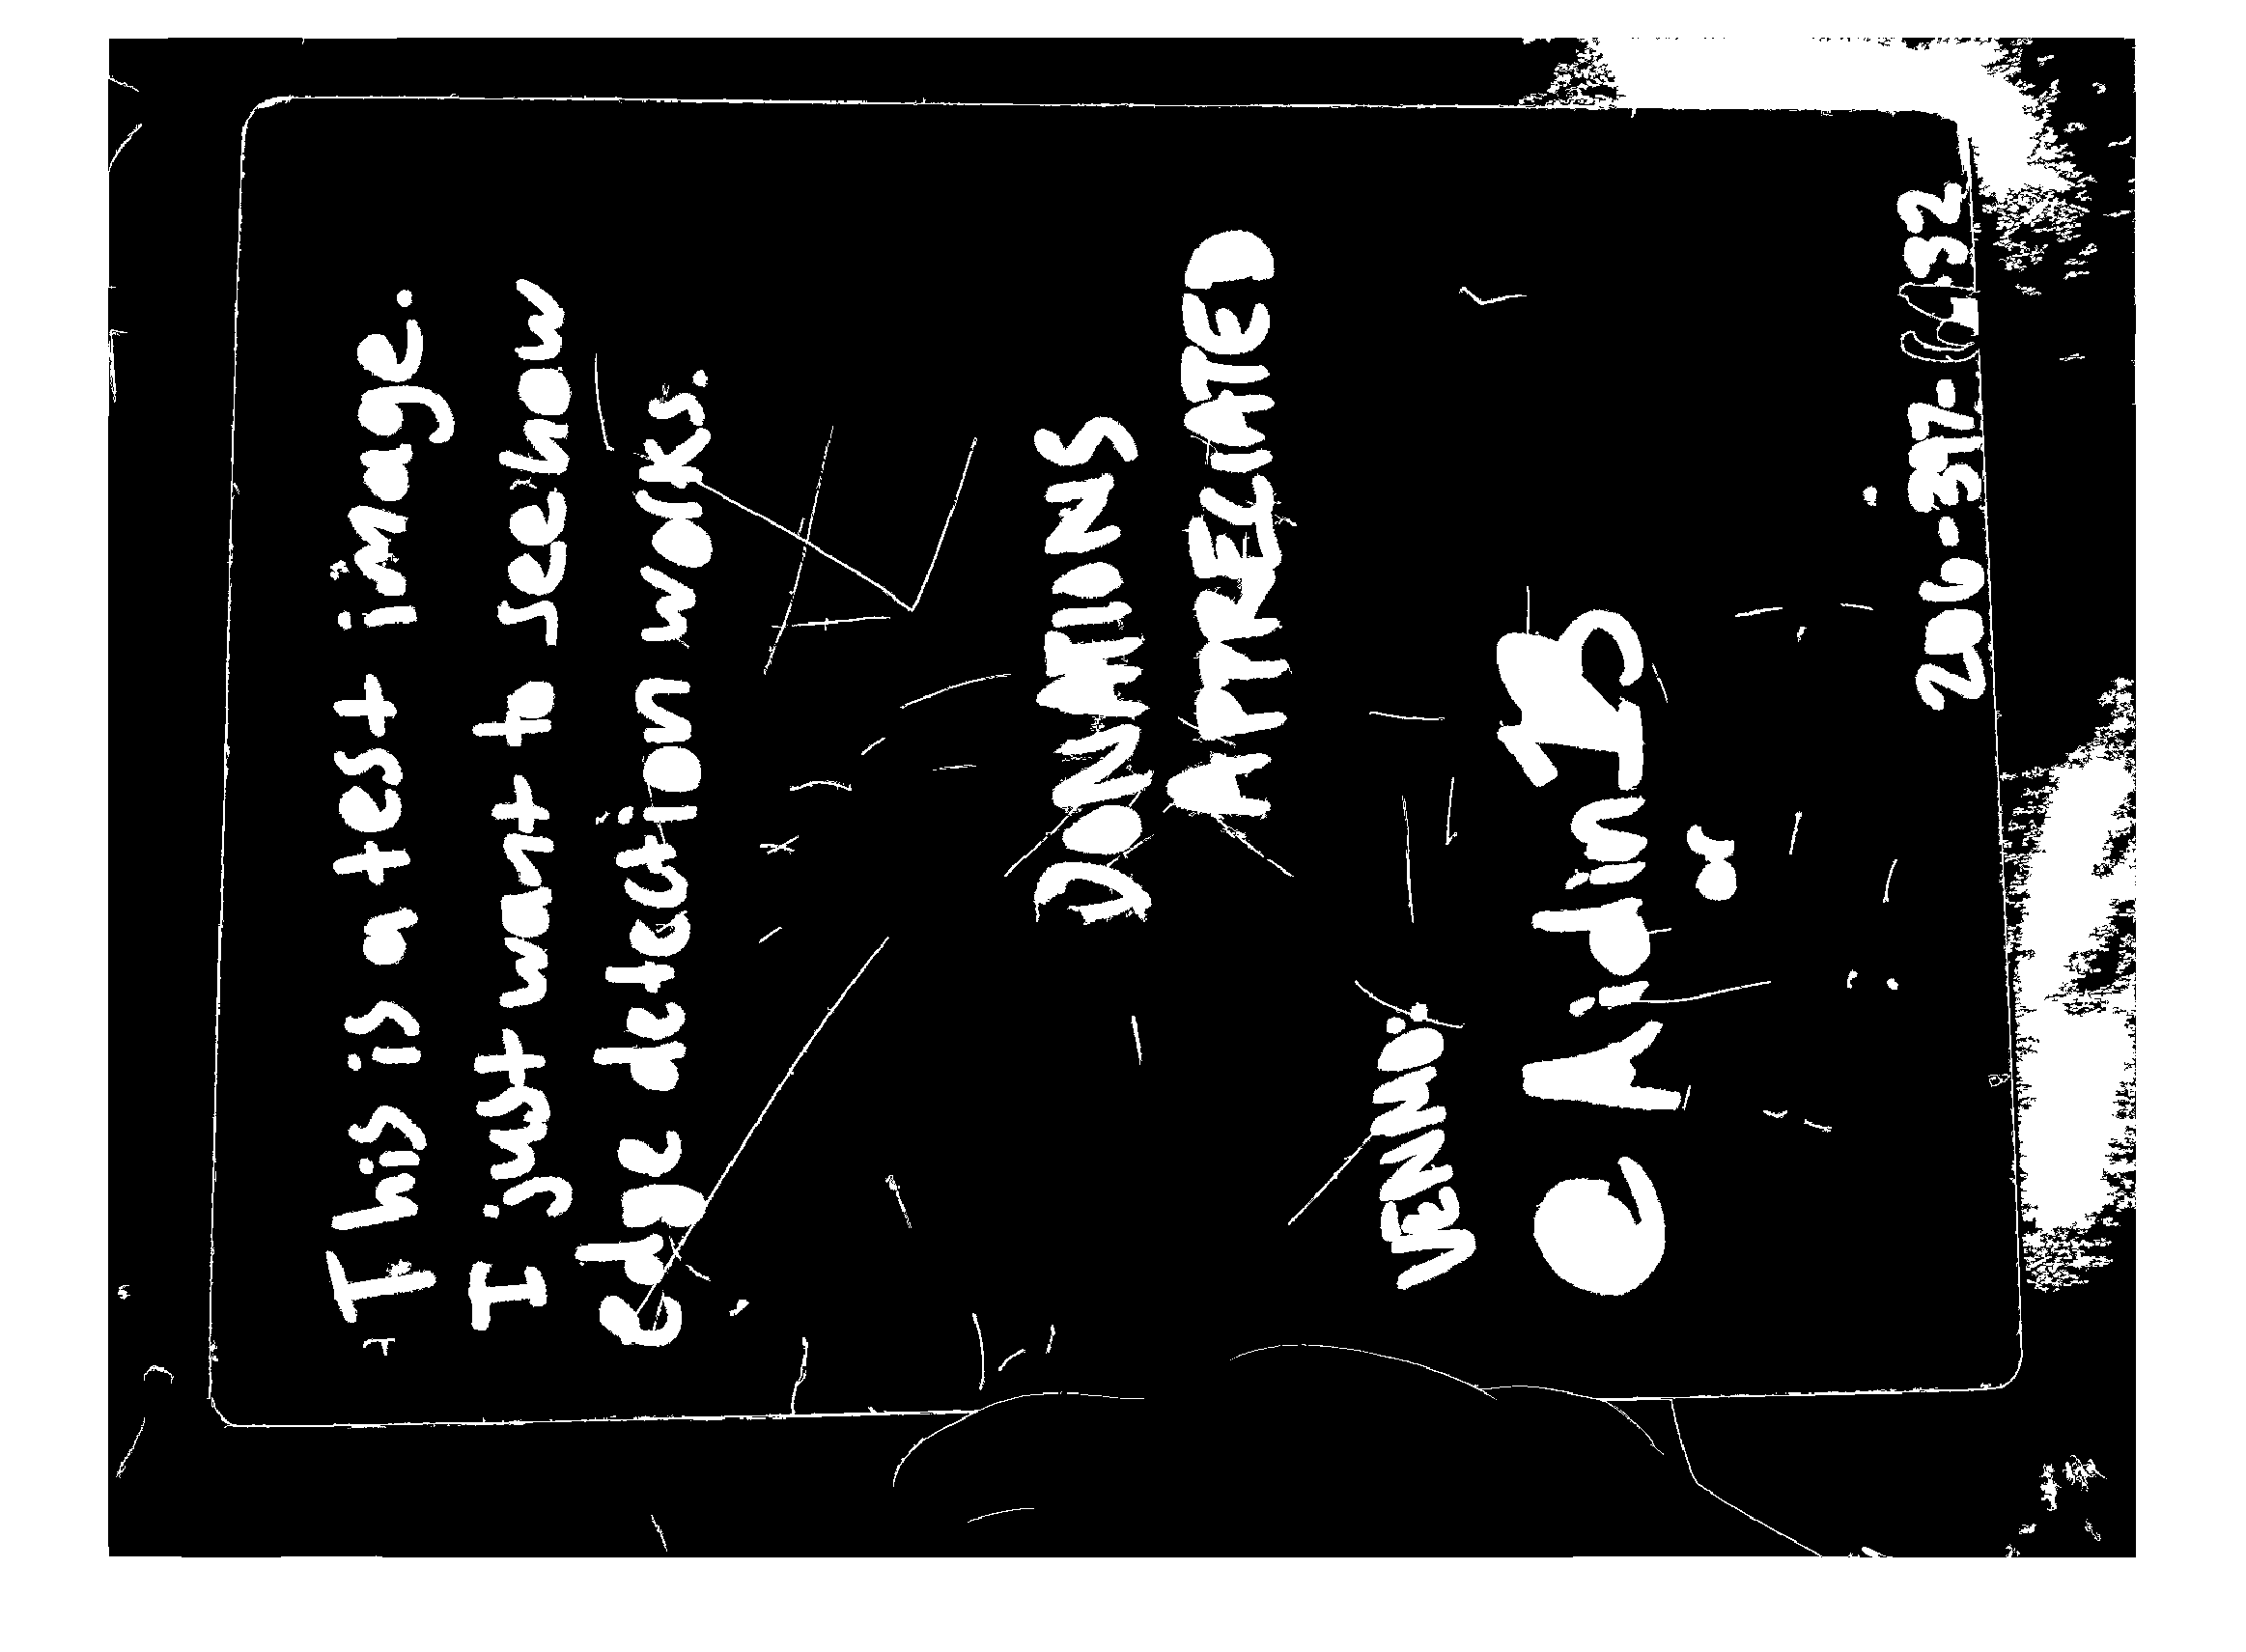 This is a test image.
I just want to see how
edge detection works.
DONATIONS
APPRECIATED
VENMO:
@Aidin
or